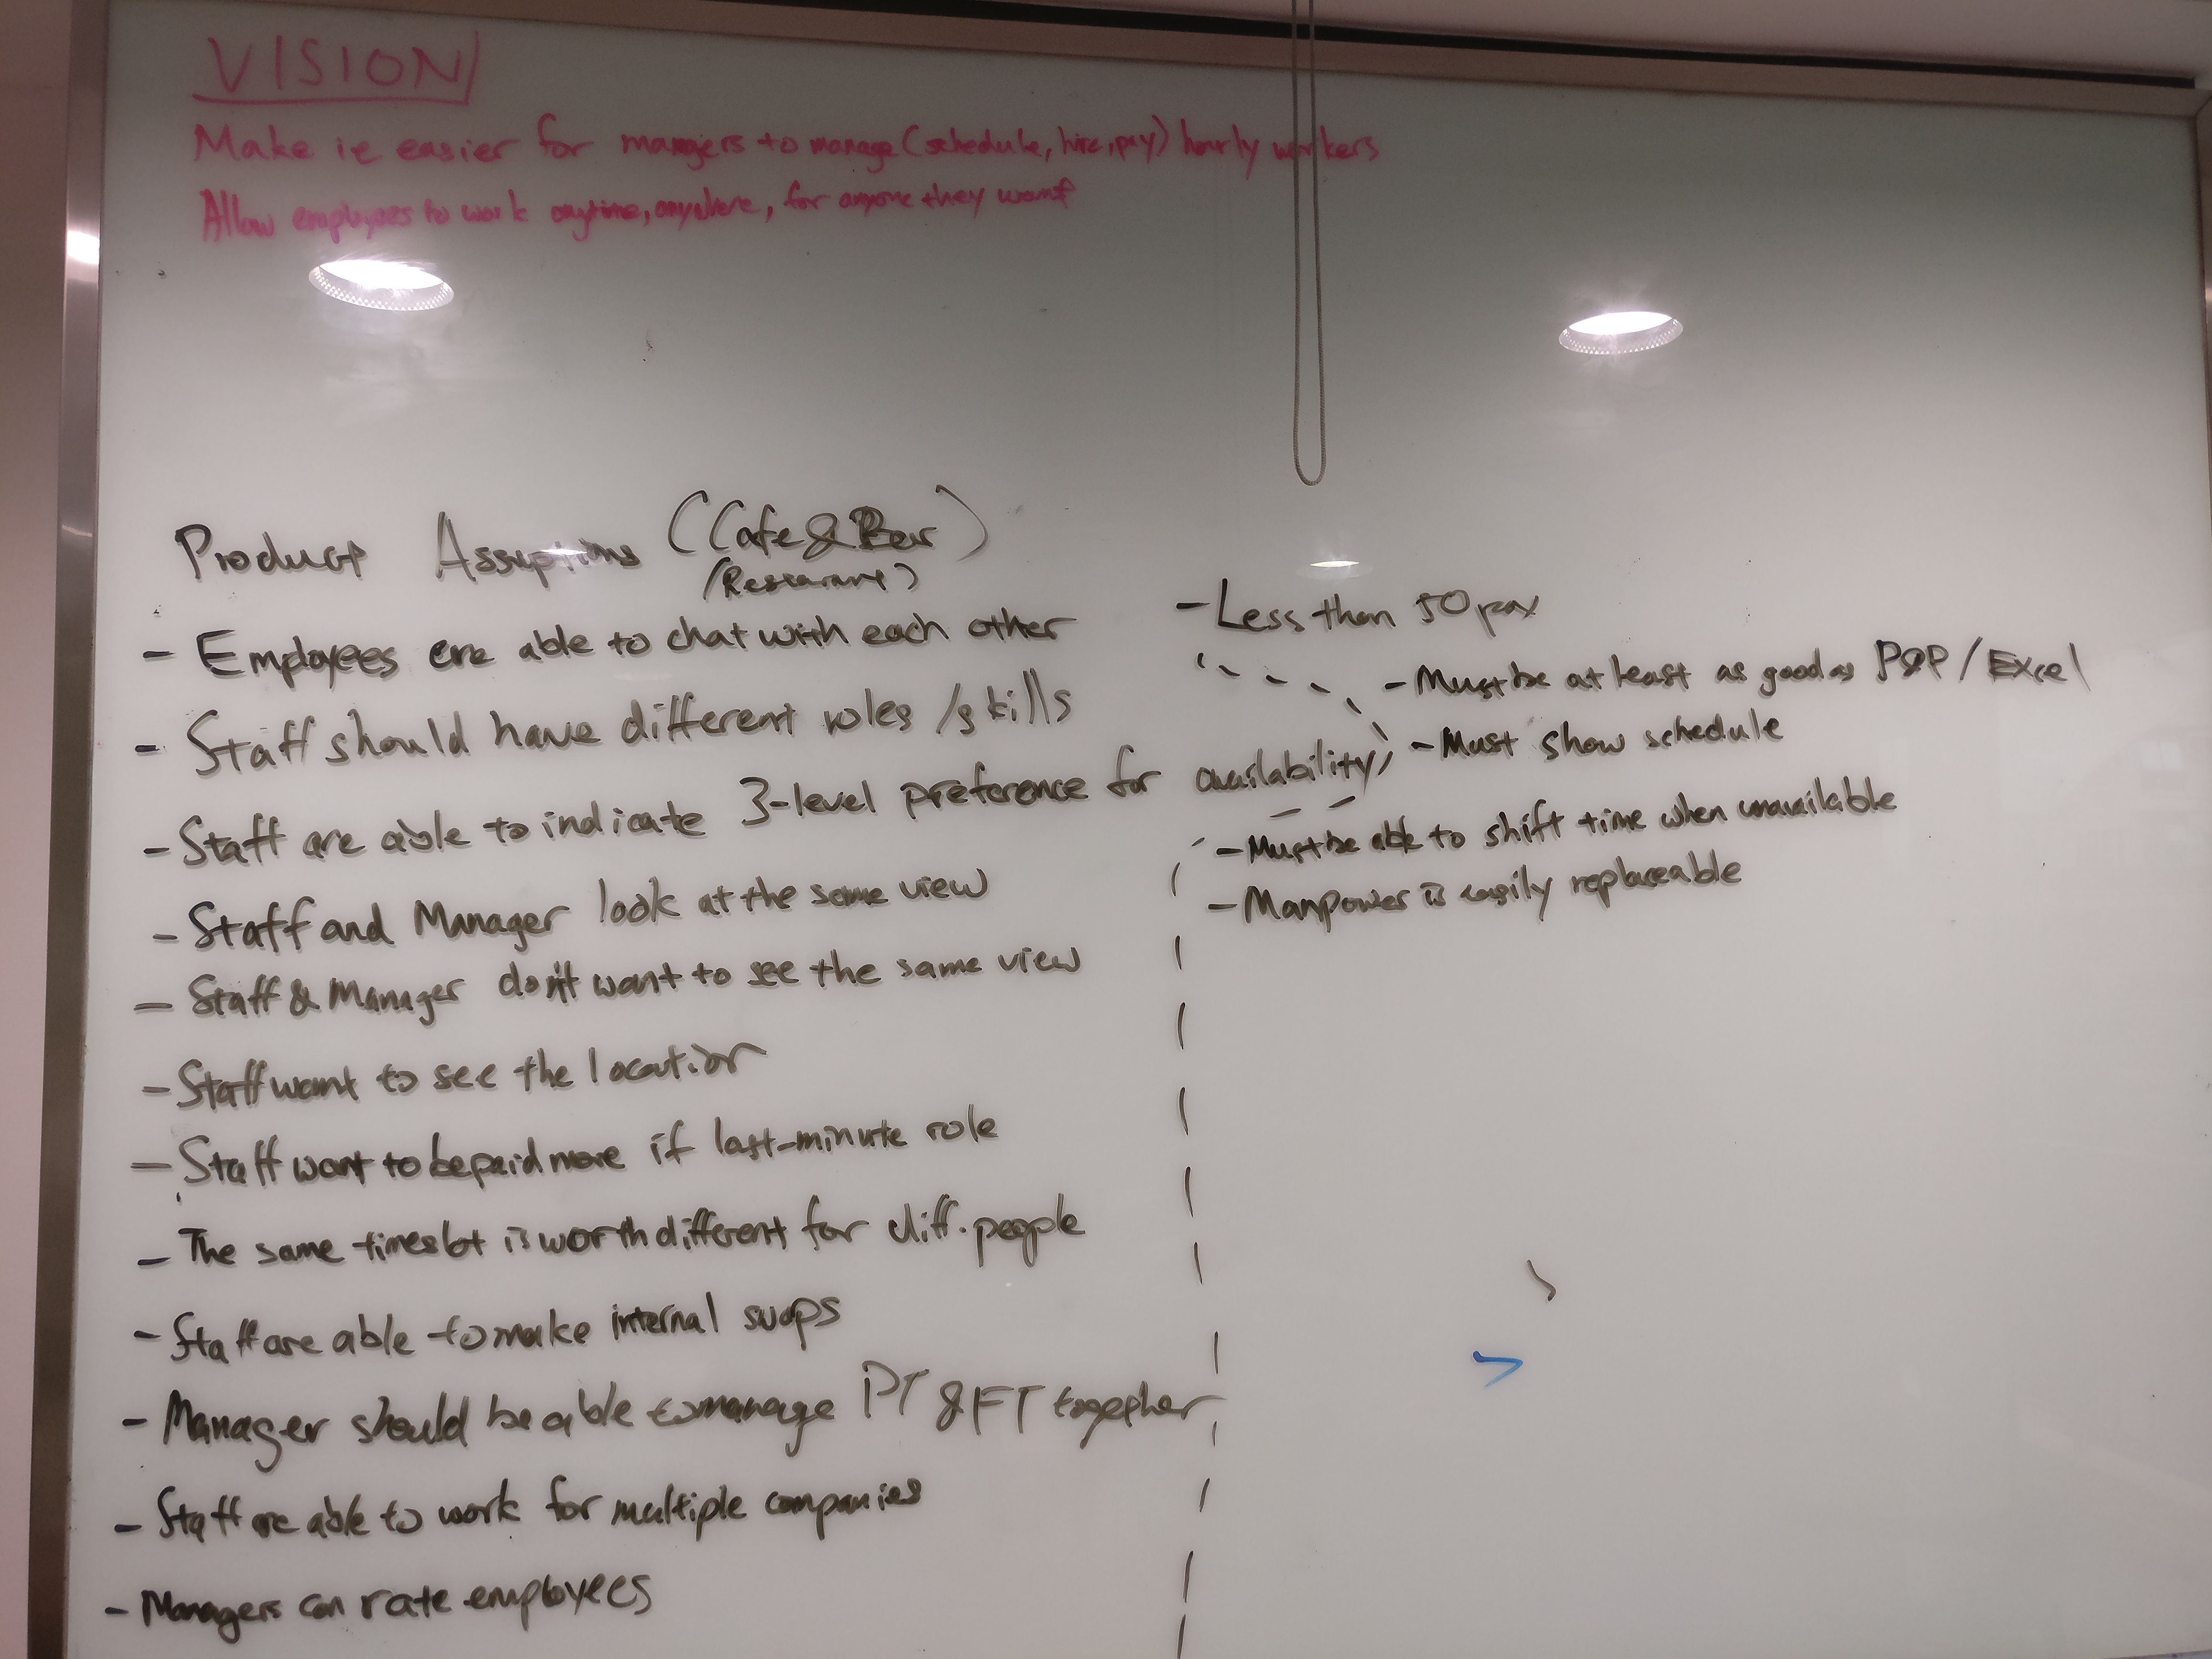 VISION
Make it easier for mangers to manage (schedule, hire, pay) hourly workers
Allow employees to work anytime, anywhere, for anyone they want
Product Assumptions (Cafe & Bar)
(Restaurant)
- Employees are able to chat with each other
- Staff should have different roles /skills
- Staff are able to indicate 3-level preference for availability
- Staff and Manager look at the same view
- Staff & Manager don't want to see the same view
- Staff want to see the location
- Staff want to be paid more if last-minute role
- The same timeslot is worth different for diff. people
- Staff are able to make internal swaps
- Manager should be able to manage PT & FT together
- Staff are able to work for multiple companies
- Managers can rate employees
- Less than 50 pax
- Must be at least as good as P&P / Excel
- Must show schedule
- Must be able to shift time when unavailable
- Manpower is easily replaceable